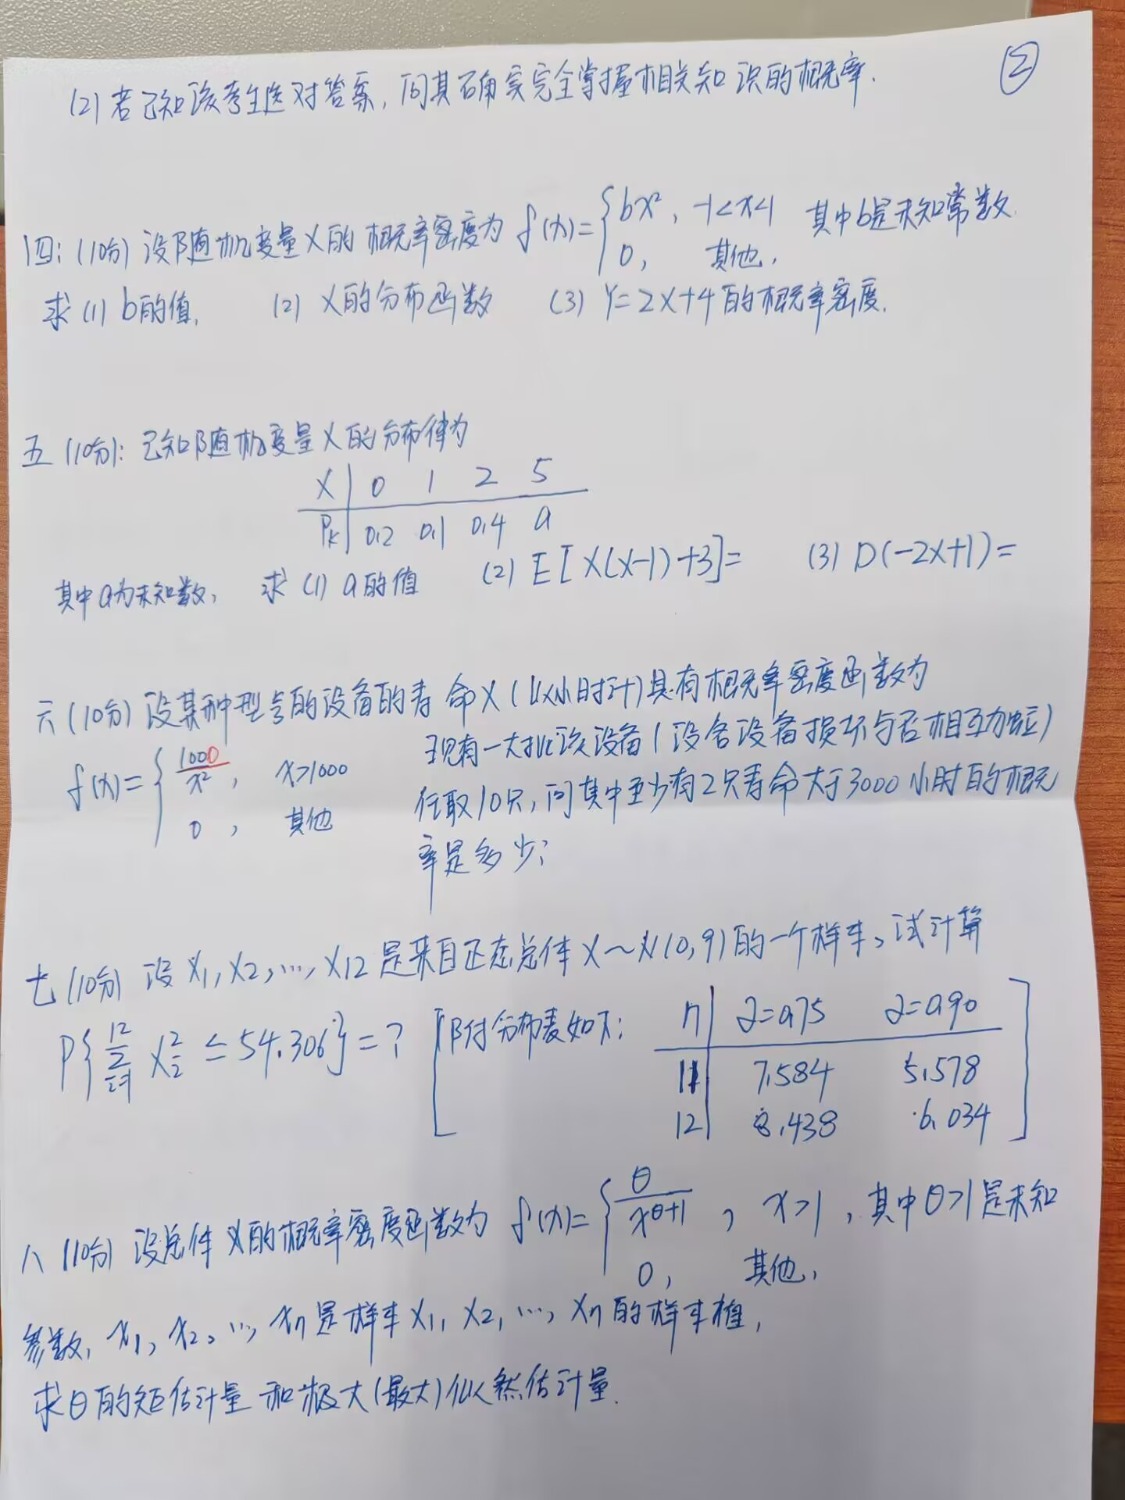 ②
(2) 若已知该考生选对答案,问其确实完全掌握相关知识的概率.
四:(10分) 设随机变量X的概率密度为 f(x)={bx², -1<x<1 其中b是未知常数.
0, 其他,
求(1) b的值. (2) X的分布函数 (3) Y=2X+4的概率密度.
五 (10分): 已知随机变量X的分布律为
X | 0 1 2 5
Pk | 0.2 0.1 0.4 a
其中a为未知数, 求(1) a的值 (2) E[X(X-1)+3]= (3) D(-2X+1)=
六 (10分) 设某种型号的设备的寿命X (以小时计)具有概率密度函数为
f(x)={1000/x², x>1000
0, 其他
现有一大批该设备(设各设备损坏与否相互独立)
任取10只,问其中至少有2只寿命大于3000小时的概
率是多少;
七 (10分) 设 X1, X2, ..., X12是来自正态总体X~N(0,9)的一个样本,试计算
P{∑_{i=1}^{12} X_i² ≤ 54.306}=? [附分布表如下:
n | α=0.75 α=0.90
11 | 7.584 5.578
12 | 8.438 6.034 ]
八 (10分) 设总体X的概率密度函数为 f(x)={θ/x^{θ+1}, x>1, 其中θ>1是未知
0, 其他,
参数, x1, x2, ..., xn是样本X1, X2, ..., Xn的样本值,
求θ的矩估计量和极大(最大)似然估计量.